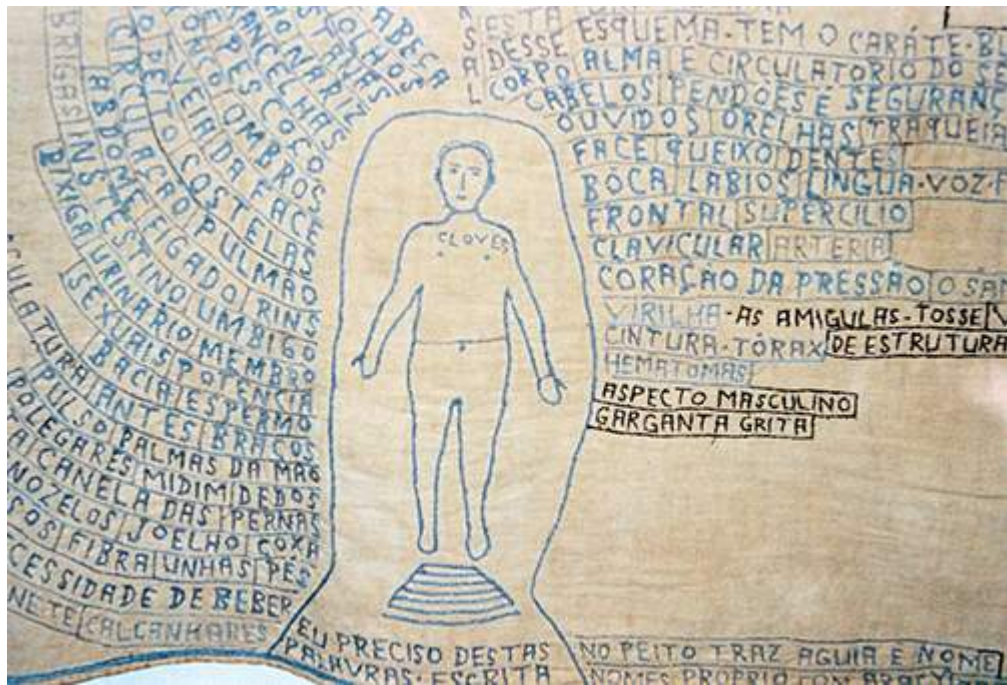 ABEÇA
OLHOS
O NARIZ
PESCOÇO
OMBROS
VEIA DA FACE
O PEITO COSTELAS
CIRCULAÇÃO PULMÃO
ABDOME FIGADO RINS
BRIGAS INSTESTINO UMBIGO
BIXIGA URINÁRIO MEMBRO
SEXUAIS POTENCIA
BACIA ESPERMO
CULATURA ANTES BRAÇOS
PULSO PALMAS DA MÃO
POLEGARES MIDIM DEDOS
A CANELA DAS PERNAS
NOZELOS JOELHO COXA
SOS FIBRA UNHAS PÉS
CESSIDADE DE BEBER
NETE CALCANHARES
CLOVES
ESTA
DESSE ESQUEMA-TEM O CARÁTE-B
CORPO ALMA E CIRCULATORIO DO SA
CABELOS PENDÕES E SEGURANÇ
OUVIDOS ORELHAS TRAQUEIA
FACE QUEIXO DENTES
BÔCA LABIOS LINGUA-VOZ-
FRONTAL SUPERCILIO
CLAVICULAR ARTERIA
CORAÇÃO DA PRESSÃO O SA
VIRILHA-AS AMIGULAS-TOSSE
CINTURA-TÓRAX DE ESTRUTURA
HEMATOMAS
ASPECTO MASCULINO
GARGANTA GRITA
EU PRECISO DESTAS
PALAVRAS-ESCRITA
NO PEITO TRAZ AGUIA E NOME
NOMES PROPRIO COM